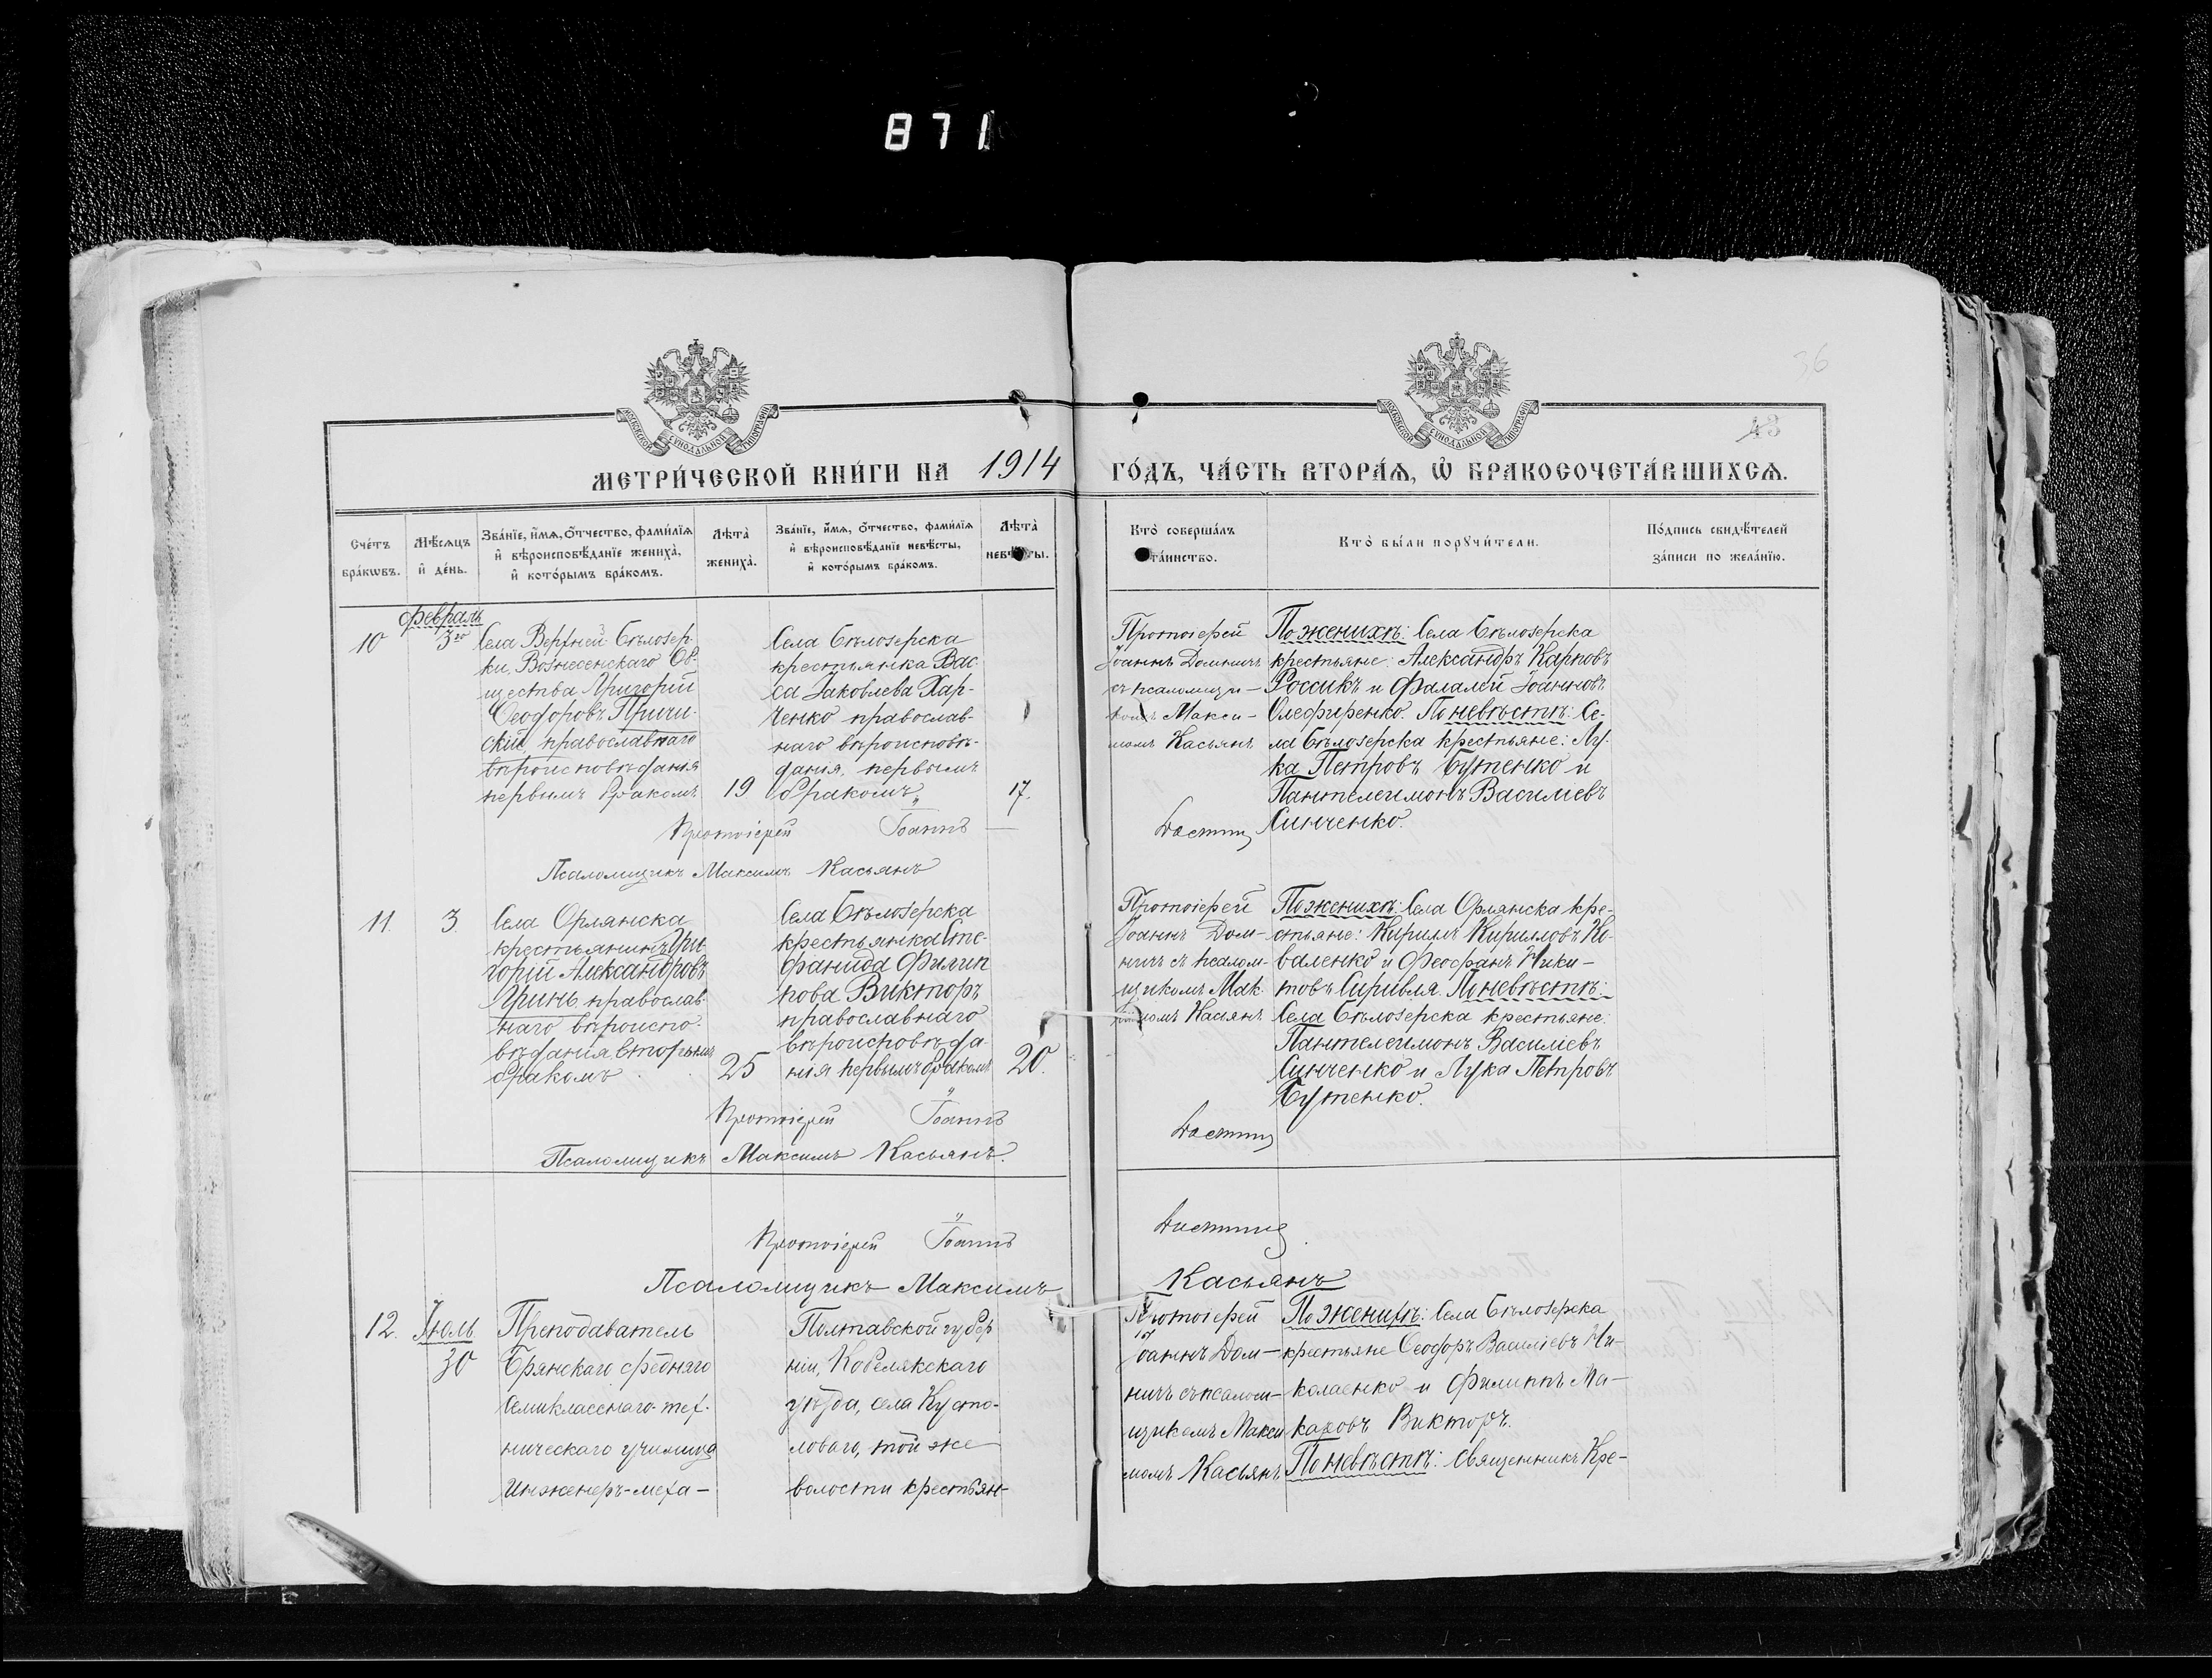 871
36
43
МЕТРИ́ЧЕСКОЙ КНИ́ГИ НА 1914 ГО́ДЪ, ЧА́СТЬ ВТОРА́Ѧ, Ѡ҆ БРАКОСОЧЕТА́ВШИХСѦ.
Сче́тъ бра́кѡвъ.
Мѣ́сѧцъ и҆ де́нь.
Зва́нїе, и҆́мѧ, о҆́тчество, фами́лїѧ и҆ вѣроисповѣ́данїе жениха̀, и҆ кото́рымъ бра́комъ.
Лѣта̀ жениха̀.
Зва́нїе, и҆́мѧ, о҆́тчество, фами́лїѧ и҆ вѣроисповѣ́данїе невѣ́сты, и҆ кото́рымъ бра́комъ.
Лѣта̀ невѣ́сты.
Кто̀ соверша́лъ та́инство.
Кто̀ бы́ли порꙋчи́тели.
По́дпись свидѣ́телей за́писи по жела́нїю.
10
Февраль
3го
Села Верхней Бѣлозер
ки, Вознесенскаго Об-
щества Григорій
Ѳеодоровъ Причи-
скій, православнаго
вѣроисповѣданія
первымъ бракомъ
19
Села Бѣлозерска
крестьянка Вас
са Іаковлева Хар-
ченко православ-
наго вѣроисповѣ-
данія, первымъ
бракомъ
17.
Протоіерей
Іоаннъ Домничъ
съ псаломщи-
комъ Макси-
момъ Касьянъ
По женихѣ: Села Бѣлозерска
крестьяне: Александръ Карповъ
Россикъ и Фалалей Іоанновъ
Олефиренко. По невѣстѣ: Се-
ла Бѣлозерска крестьяне: Лу-
ка Петровъ Бутенко и
Пантелеимонъ Василіевъ
Синченко.
Протоіерей Іоаннъ
Псаломщикъ Максимъ Касьянъ
11.
3
Села Орлянска
крестьянинъ Гри
горій Александровъ
Гринь православ-
наго вѣроиспо-
вѣданія, вторымъ
бракомъ
25
Села Бѣлозерска
крестьянка Сте-
фанида Филип
пова Викторъ
православнаго
вѣроисповѣда-
нія первымъ бракомъ
20.
Протоіерей
Іоаннъ Дом-
ничъ съ псалом-
щикомъ Мак-
симомъ Касьянъ
По женихѣ: Села Орлянска кре-
стьяне: Кириллъ Кирилловъ Ко-
валенко и Феофанъ Ники-
товъ Сиривля. По невѣстѣ:
Села Бѣлозерска крестьяне:
Пантелеимонъ Василіевъ
Синченко и Лука Петровъ
Бутенко.
Протоіерей Іоаннъ
Псаломщикъ Максимъ Касьянъ.
Протоіерей Іоаннъ
Псаломщикъ Максимъ Касьянъ
12.
Іюль
30
Преподаватель
Брянскаго средняго
семикласснаго тех-
ническаго училища
инженеръ-меха-
Полтавской губер
ніи, Кобелякскаго
уѣзда, села Кусто-
ловаго, той же
волости крестьян-
Протоіерей
Іоаннъ Дом-
ничъ съ псалом-
щикомъ Макси
момъ Касьянъ
По женихѣ: Села Бѣлозерска
крестьяне Ѳеодоръ Василіевъ Ни-
колаенко и Филиппъ Ма-
каровъ Викторъ.
По невѣстѣ: священникъ Кре-